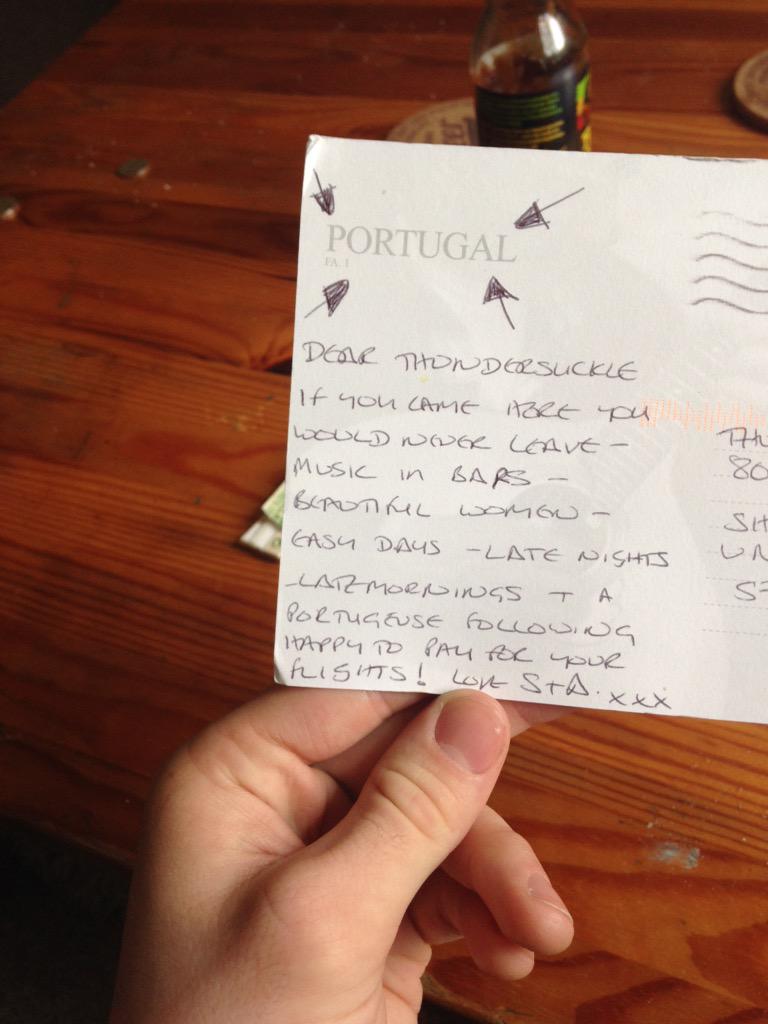 PORTUGAL
FA. 1
DEAR THUNDERSUCKLE
IF YOU CAME HERE YOU
WOULD NEVER LEAVE –
MUSIC IN BARS –
BEAUTIFUL WOMEN –
EASY DAYS – LATE NIGHTS
– LATE MORNINGS + A
PORTUGEUSE FOLLOWING
HAPPY TO PAY FOR YOUR
FLIGHTS! LOVE S+A. xxx
THU
80
SH
UN
ST